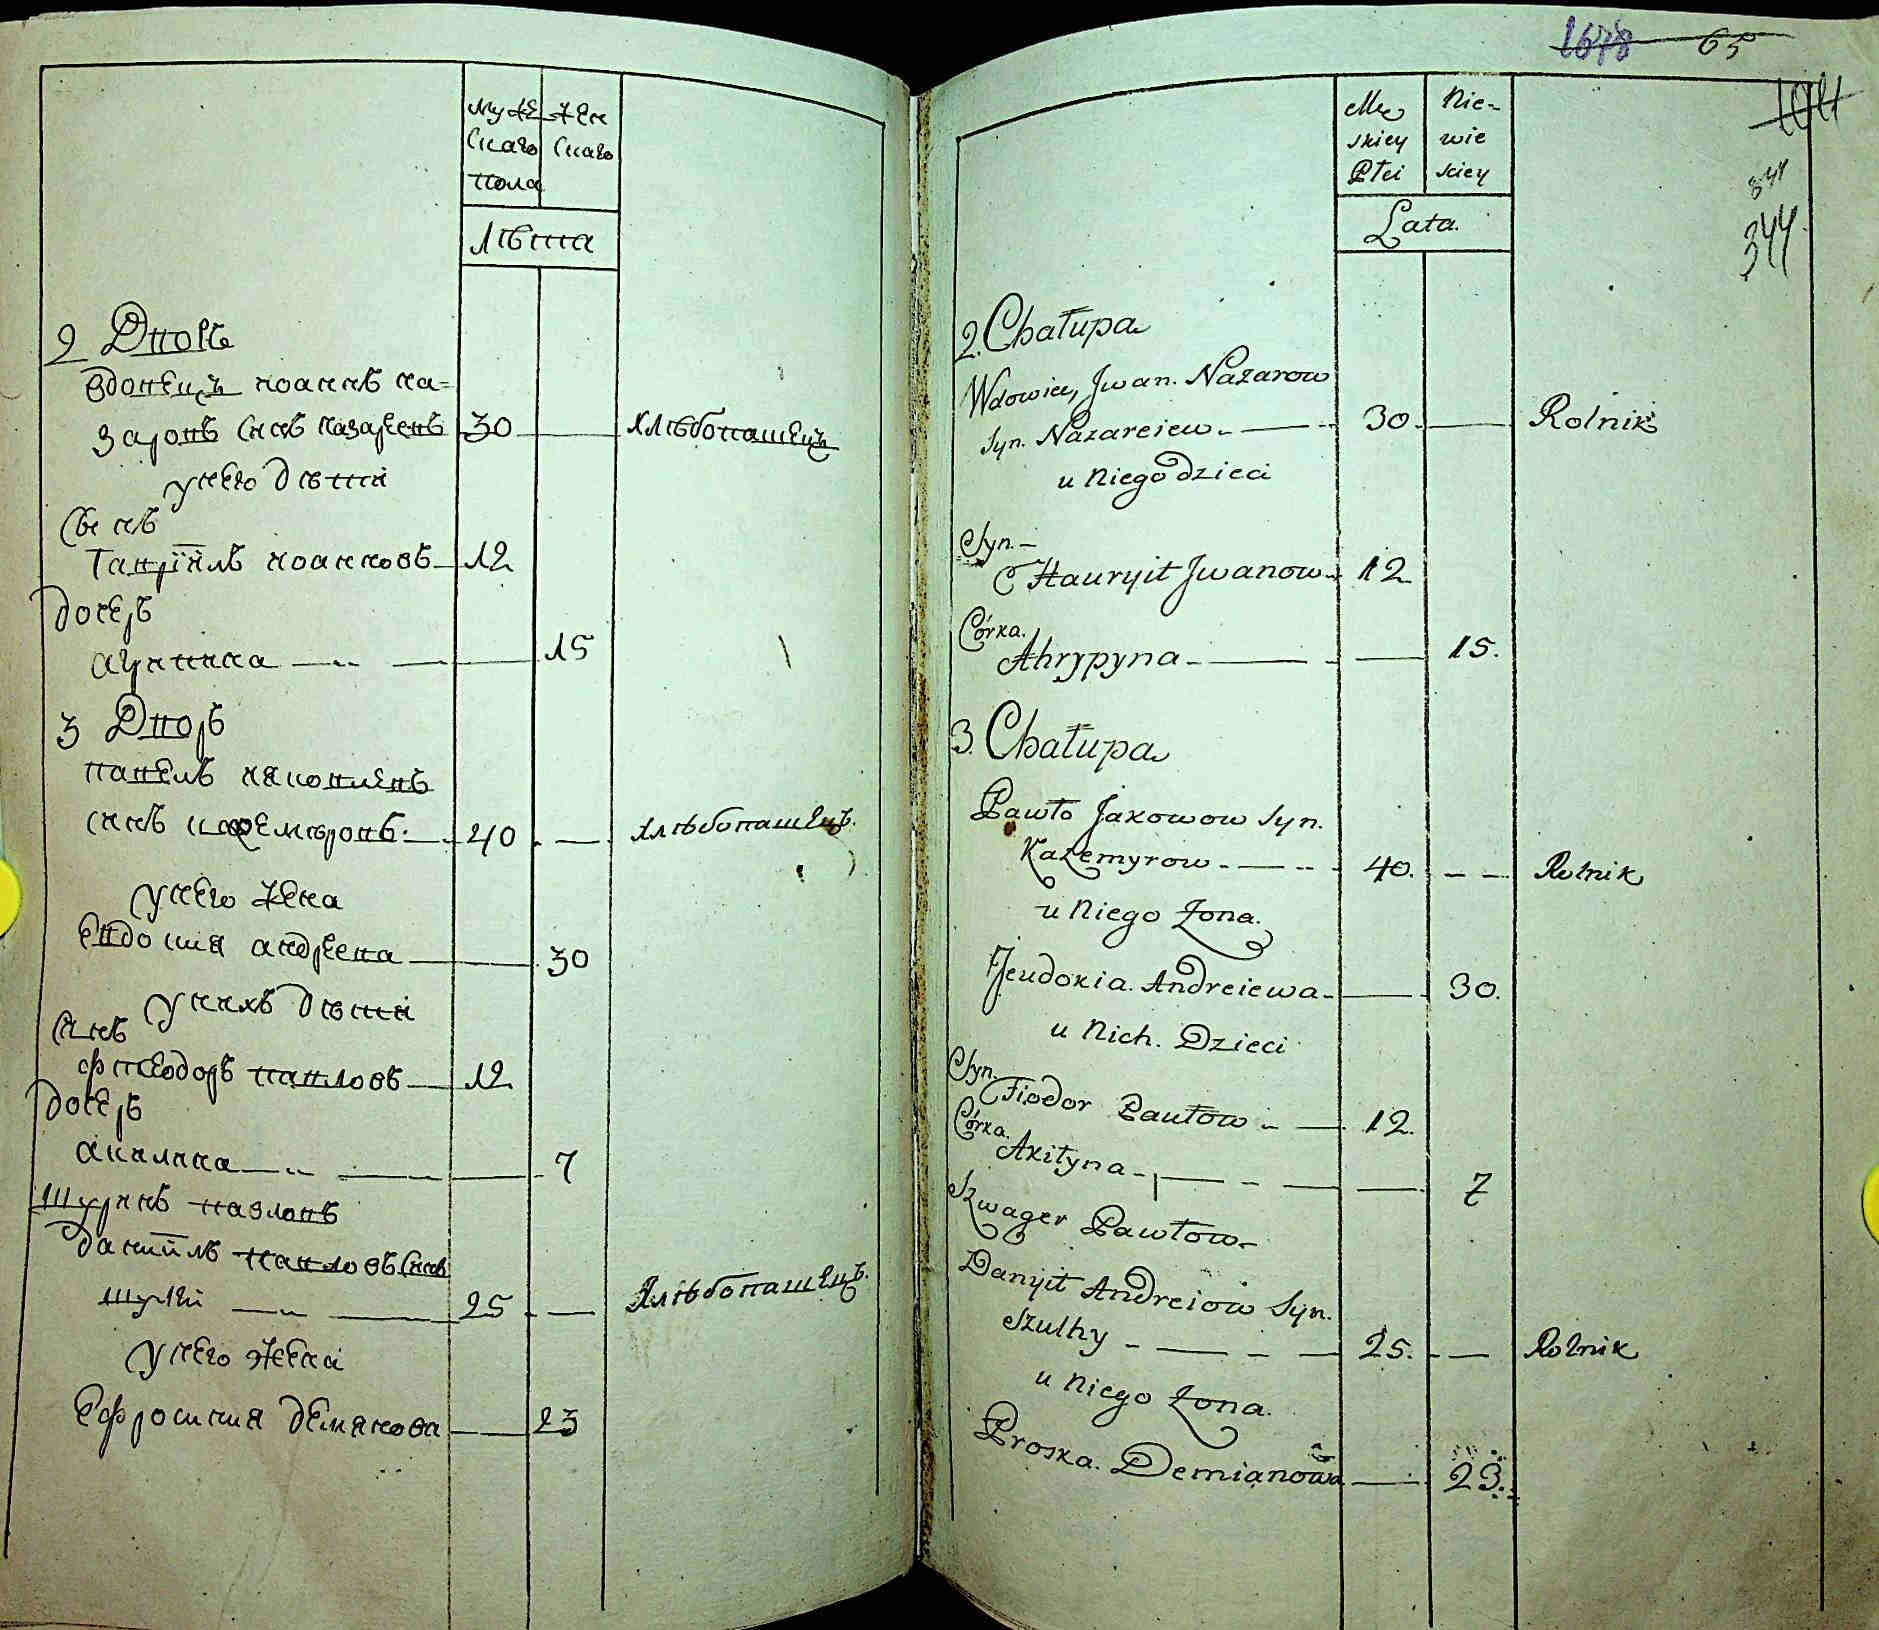 муже
скаго
пола
жен
скаго
лѣта
2 Дворъ
вдовецъ иоаннъ на=
заровъ синъ назареевъ 30 — хлѣбопашецъ
унего дѣти
Синъ
Гавріилъ иоанновъ 12
Дочеръ
агрипина — 15
3 Дворъ
павелъ иаковлевъ
синъ каземѣровъ. — 40 — хлѣбопашецъ.
унего жена
Евдокия андреева — 30
унихъ дѣти
Синъ
фтеодоръ павловъ — 12
Дочеръ
акилина — 7
Шуринъ павловъ
Даниилъ павловъ синъ
шулги — 25 — хлѣбопашецъ.
унего жена
Ефросиния демянова — 23
1678 65
104
344
344.
Mę
skiey
Płci
Nie-
wie
sciey
Lata.
2. Chałupa
Wdowiec, Jwan. Nazarow
Syn. Nazareiew. — 30. — Rolnik
u Niego dzieci
Syn. —
Hauryił Jwanow. 12
Córka.
Ahrypyna — 15.
3. Chałupa
Pawło Jakowow Syn.
Kazemyrow — 40. — Rolnik
u Niego Żona.
Jeudokia. Andreiewa. — 30.
u Nich. Dzieci
Syn.
Fiodor Pautow — 12.
Córka.
Akiłyna — 7
Szwager Pawłow.
Danyił Andreiow Syn.
Szulhy — 25. — Rolnik
u Niego Żona.
Proska. Demianowa — 23.